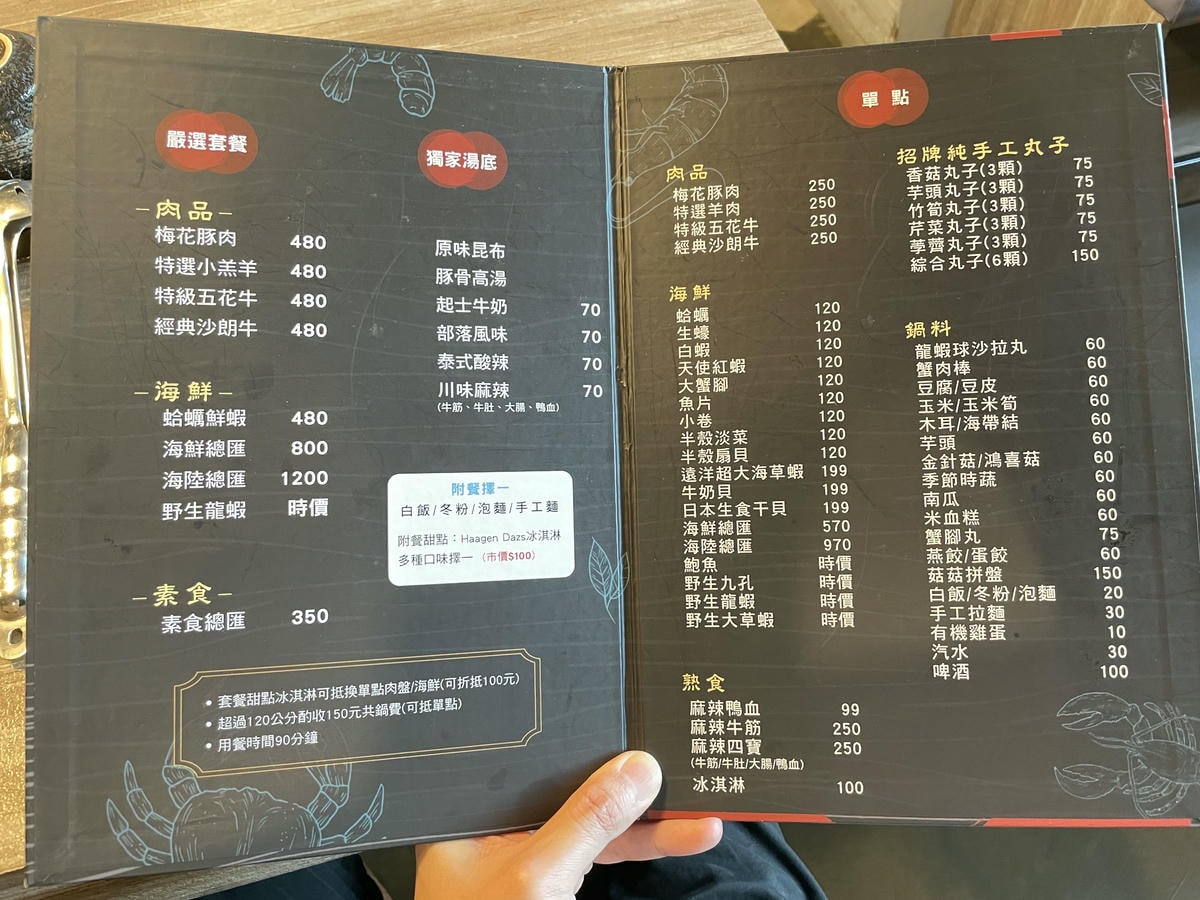 嚴選套餐
－肉品－
梅花豚肉 480
特選小羔羊 480
特級五花牛 480
經典沙朗牛 480
－海鮮－
蛤蠣鮮蝦 480
海鮮總匯 800
海陸總匯 1200
野生龍蝦 時價
－素食－
素食總匯 350
獨家湯底
原味昆布
豚骨高湯
起士牛奶 70
部落風味 70
泰式酸辣 70
川味麻辣 70
(牛筋、牛肚、大腸、鴨血)
附餐擇一
白飯/冬粉/泡麵/手工麵
附餐甜點：Haagen Dazs冰淇淋
多種口味擇一 (市價$100)
• 套餐甜點冰淇淋可抵換單點肉盤/海鮮(可折抵100元)
• 超過120公分酌收150元共鍋費(可抵單點)
• 用餐時間90分鐘
單點
肉品
梅花豚肉 250
特選羊肉 250
特級五花牛 250
經典沙朗牛 250
海鮮
蛤蠣 120
生蠔 120
白蝦 120
天使紅蝦 120
大蟹腳 120
魚片 120
小卷 120
半殼淡菜 120
半殼扇貝 120
遠洋超大海草蝦 199
牛奶貝 199
日本生食干貝 199
海鮮總匯 570
海陸總匯 970
鮑魚 時價
野生九孔 時價
野生龍蝦 時價
野生大草蝦 時價
熟食
麻辣鴨血 99
麻辣牛筋 250
麻辣四寶 250
(牛筋/牛肚/大腸/鴨血)
冰淇淋 100
招牌純手工丸子
香菇丸子(3顆) 75
芋頭丸子(3顆) 75
竹筍丸子(3顆) 75
芹菜丸子(3顆) 75
荸薺丸子(3顆) 75
綜合丸子(6顆) 150
鍋料
龍蝦球沙拉丸 60
蟹肉棒 60
豆腐/豆皮 60
玉米/玉米筍 60
木耳/海帶結 60
芋頭 60
金針菇/鴻喜菇 60
季節時蔬 60
南瓜 60
米血糕 60
蟹腳丸 75
燕餃/蛋餃 60
菇菇拼盤 150
白飯/冬粉/泡麵 20
手工拉麵 30
有機雞蛋 10
汽水 30
啤酒 100